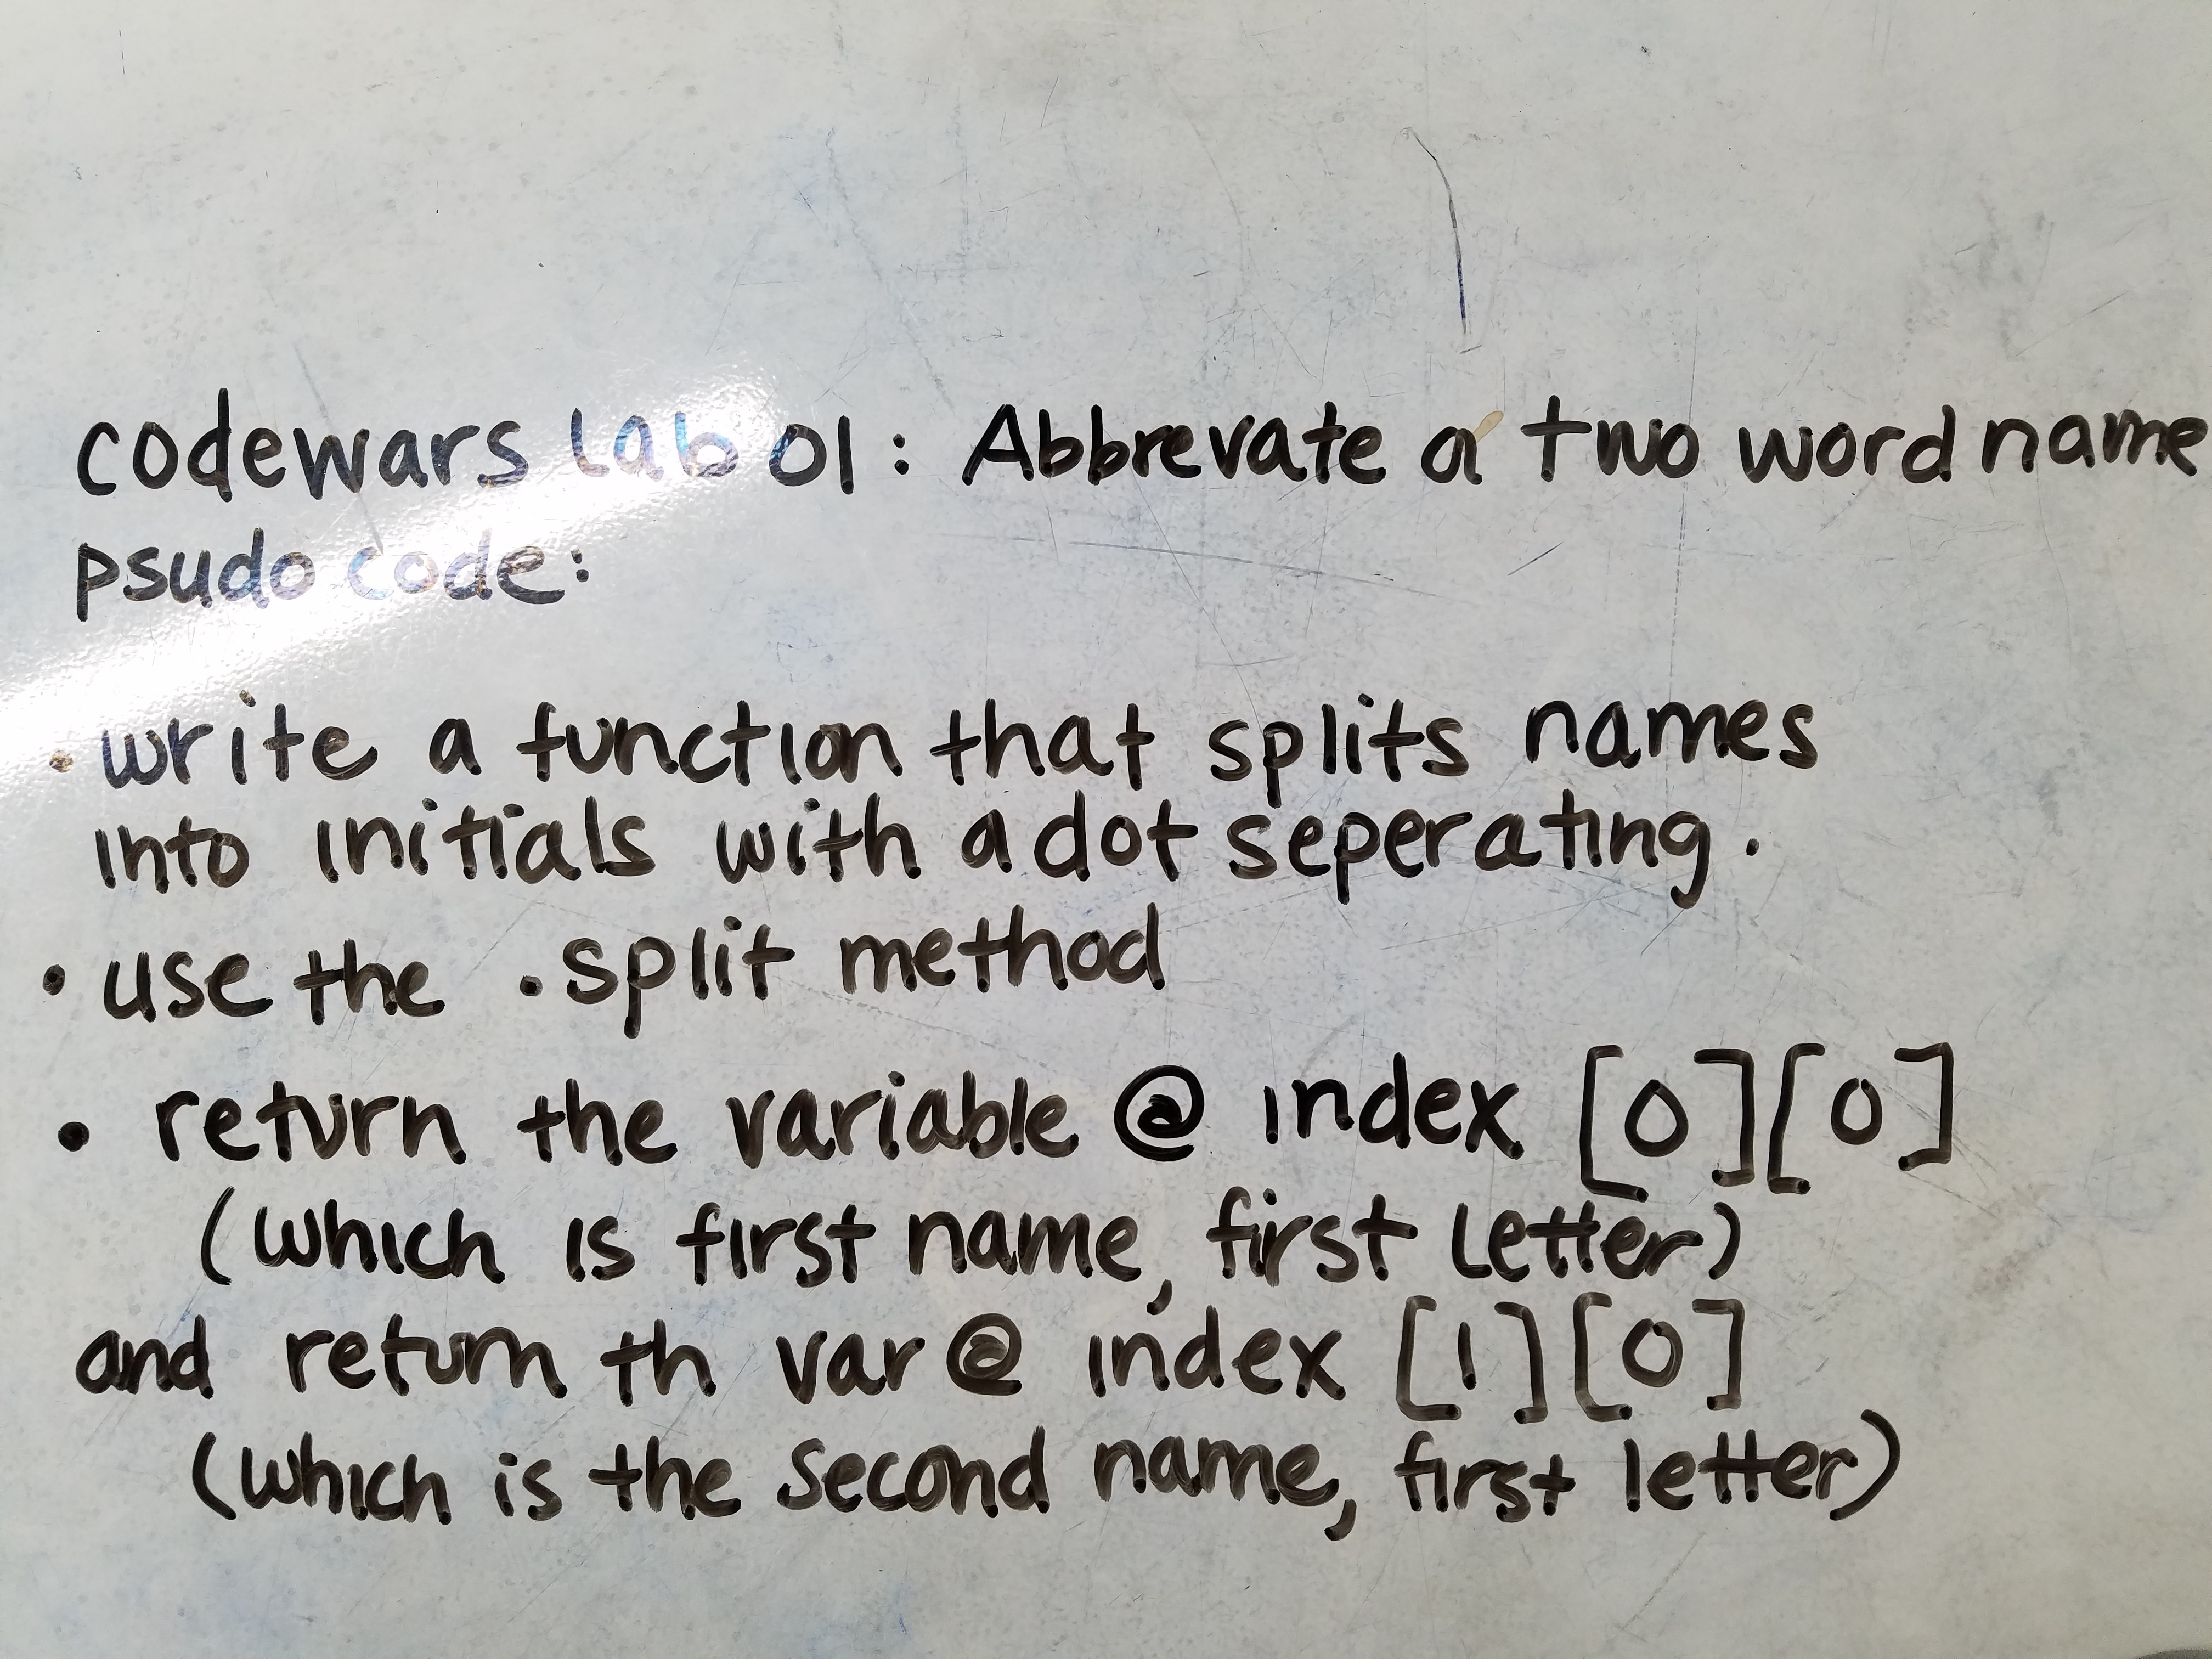 codewars Lab 01: Abbrevate a two word name
psudo code:
• write a function that splits names
into initials with a dot seperating.
• use the .split method
• return the variable @ index [0][0]
(which is first name, first letter)
and return th var @ index [1][0]
(which is the second name, first letter)